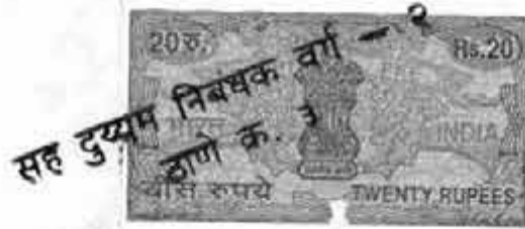 20 रु. Rs.20
सह दुय्यम निबंधक वर्ग - २
ठाणे क्र. ३
भारत INDIA
बीस रुपये TWENTY RUPEES